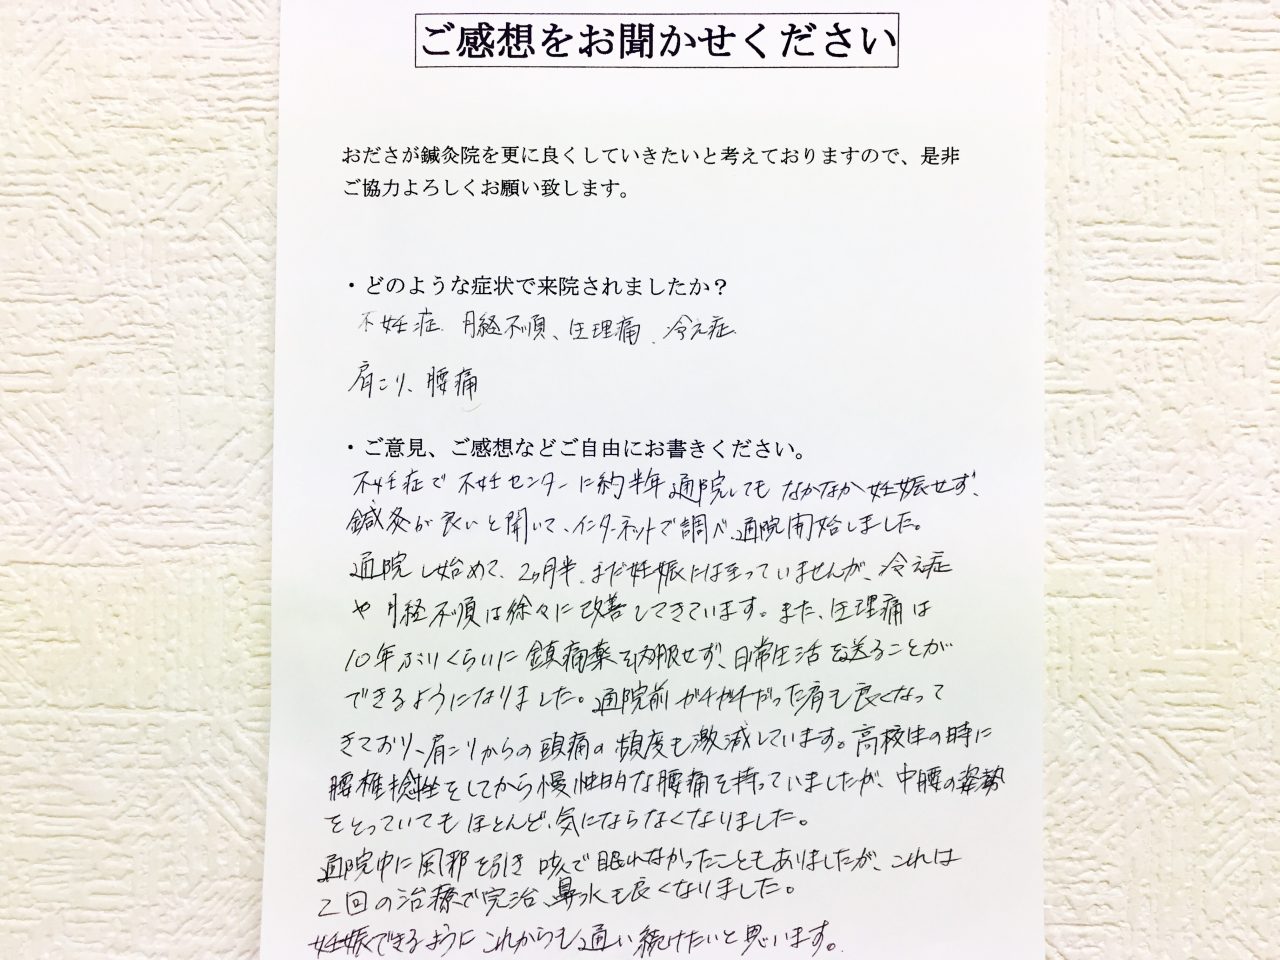 ご感想をお聞かせください
おださが鍼灸院を更に良くしていきたいと考えておりますので、是非
ご協力よろしくお願い致します。
・どのような症状で来院されましたか？
不妊症、月経不順、生理痛、冷え症
肩こり、腰痛
・ご意見、ご感想などご自由にお書きください。
不妊症で不妊センターに約半年通院してもなかなか妊娠せず、
鍼灸が良いと聞いて、インターネットで調べ、通院開始しました。
通院し始めて、2ヶ月半、まだ妊娠には至っていませんが、冷え症
や月経不順は徐々に改善してきています。また、生理痛は
10年ぶりくらいに鎮痛薬を内服せず、日常生活を送ることが
できるようになりました。通院前ガチガチだった肩も良くなって
きており、肩こりからの頭痛の頻度も激減しています。高校生の時に
腰椎捻挫をしてから慢性的な腰痛を持っていましたが、中腰の姿勢
をとっていてもほとんど気にならなくなりました。
通院中に風邪を引き咳で眠れなかったこともありましたが、これは
2回の治療で完治、鼻水も良くなりました。
妊娠できるようにこれからも通い続けたいと思います。